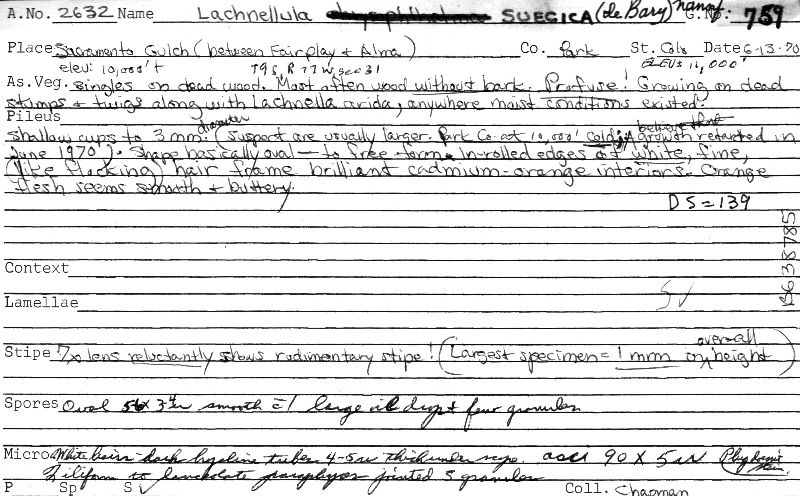 A.No. 2632 Name Lachnellula SUECICA (de Bary) Nannf G.No: 759
Place Sacramento Gulch (between Fairplay & Alma) Co. Park St. Colo Date 6-13-70
elev: 10,000' ± T9S, R77W, sec 31 ELEVS 11,000'
As.Veg. singles on dead wood. Most often wood without bark. Profuse! Growing on dead
stumps & twigs along with Lachnella arida, anywhere moist conditions existed.
Pileus
shallow cups to 3 mm. diameter (support are usually larger. Park Co. at 10,000' cold, growth retarded in
June 1970). Shape basically oval — to free-form. In-rolled edges of white, fine,
(like flocking) hair frame brilliant cadmium-orange interiors. Orange
flesh seems smooth & buttery.
DS=139
B638785
Context
Lamellae
Stipe 7x lens reluctantly shows rudimentary stipe! (Largest specimen = 1 mm overall in height)
Spores Oval 5 x 3 smooth 1 large oil drop & few granules
Micro White hairs hyaline tubes 4-5u thick under asci 90 x 5u
Filiform to lanceolate paraphyses jointed & granules
P Sp S Coll. Chapman